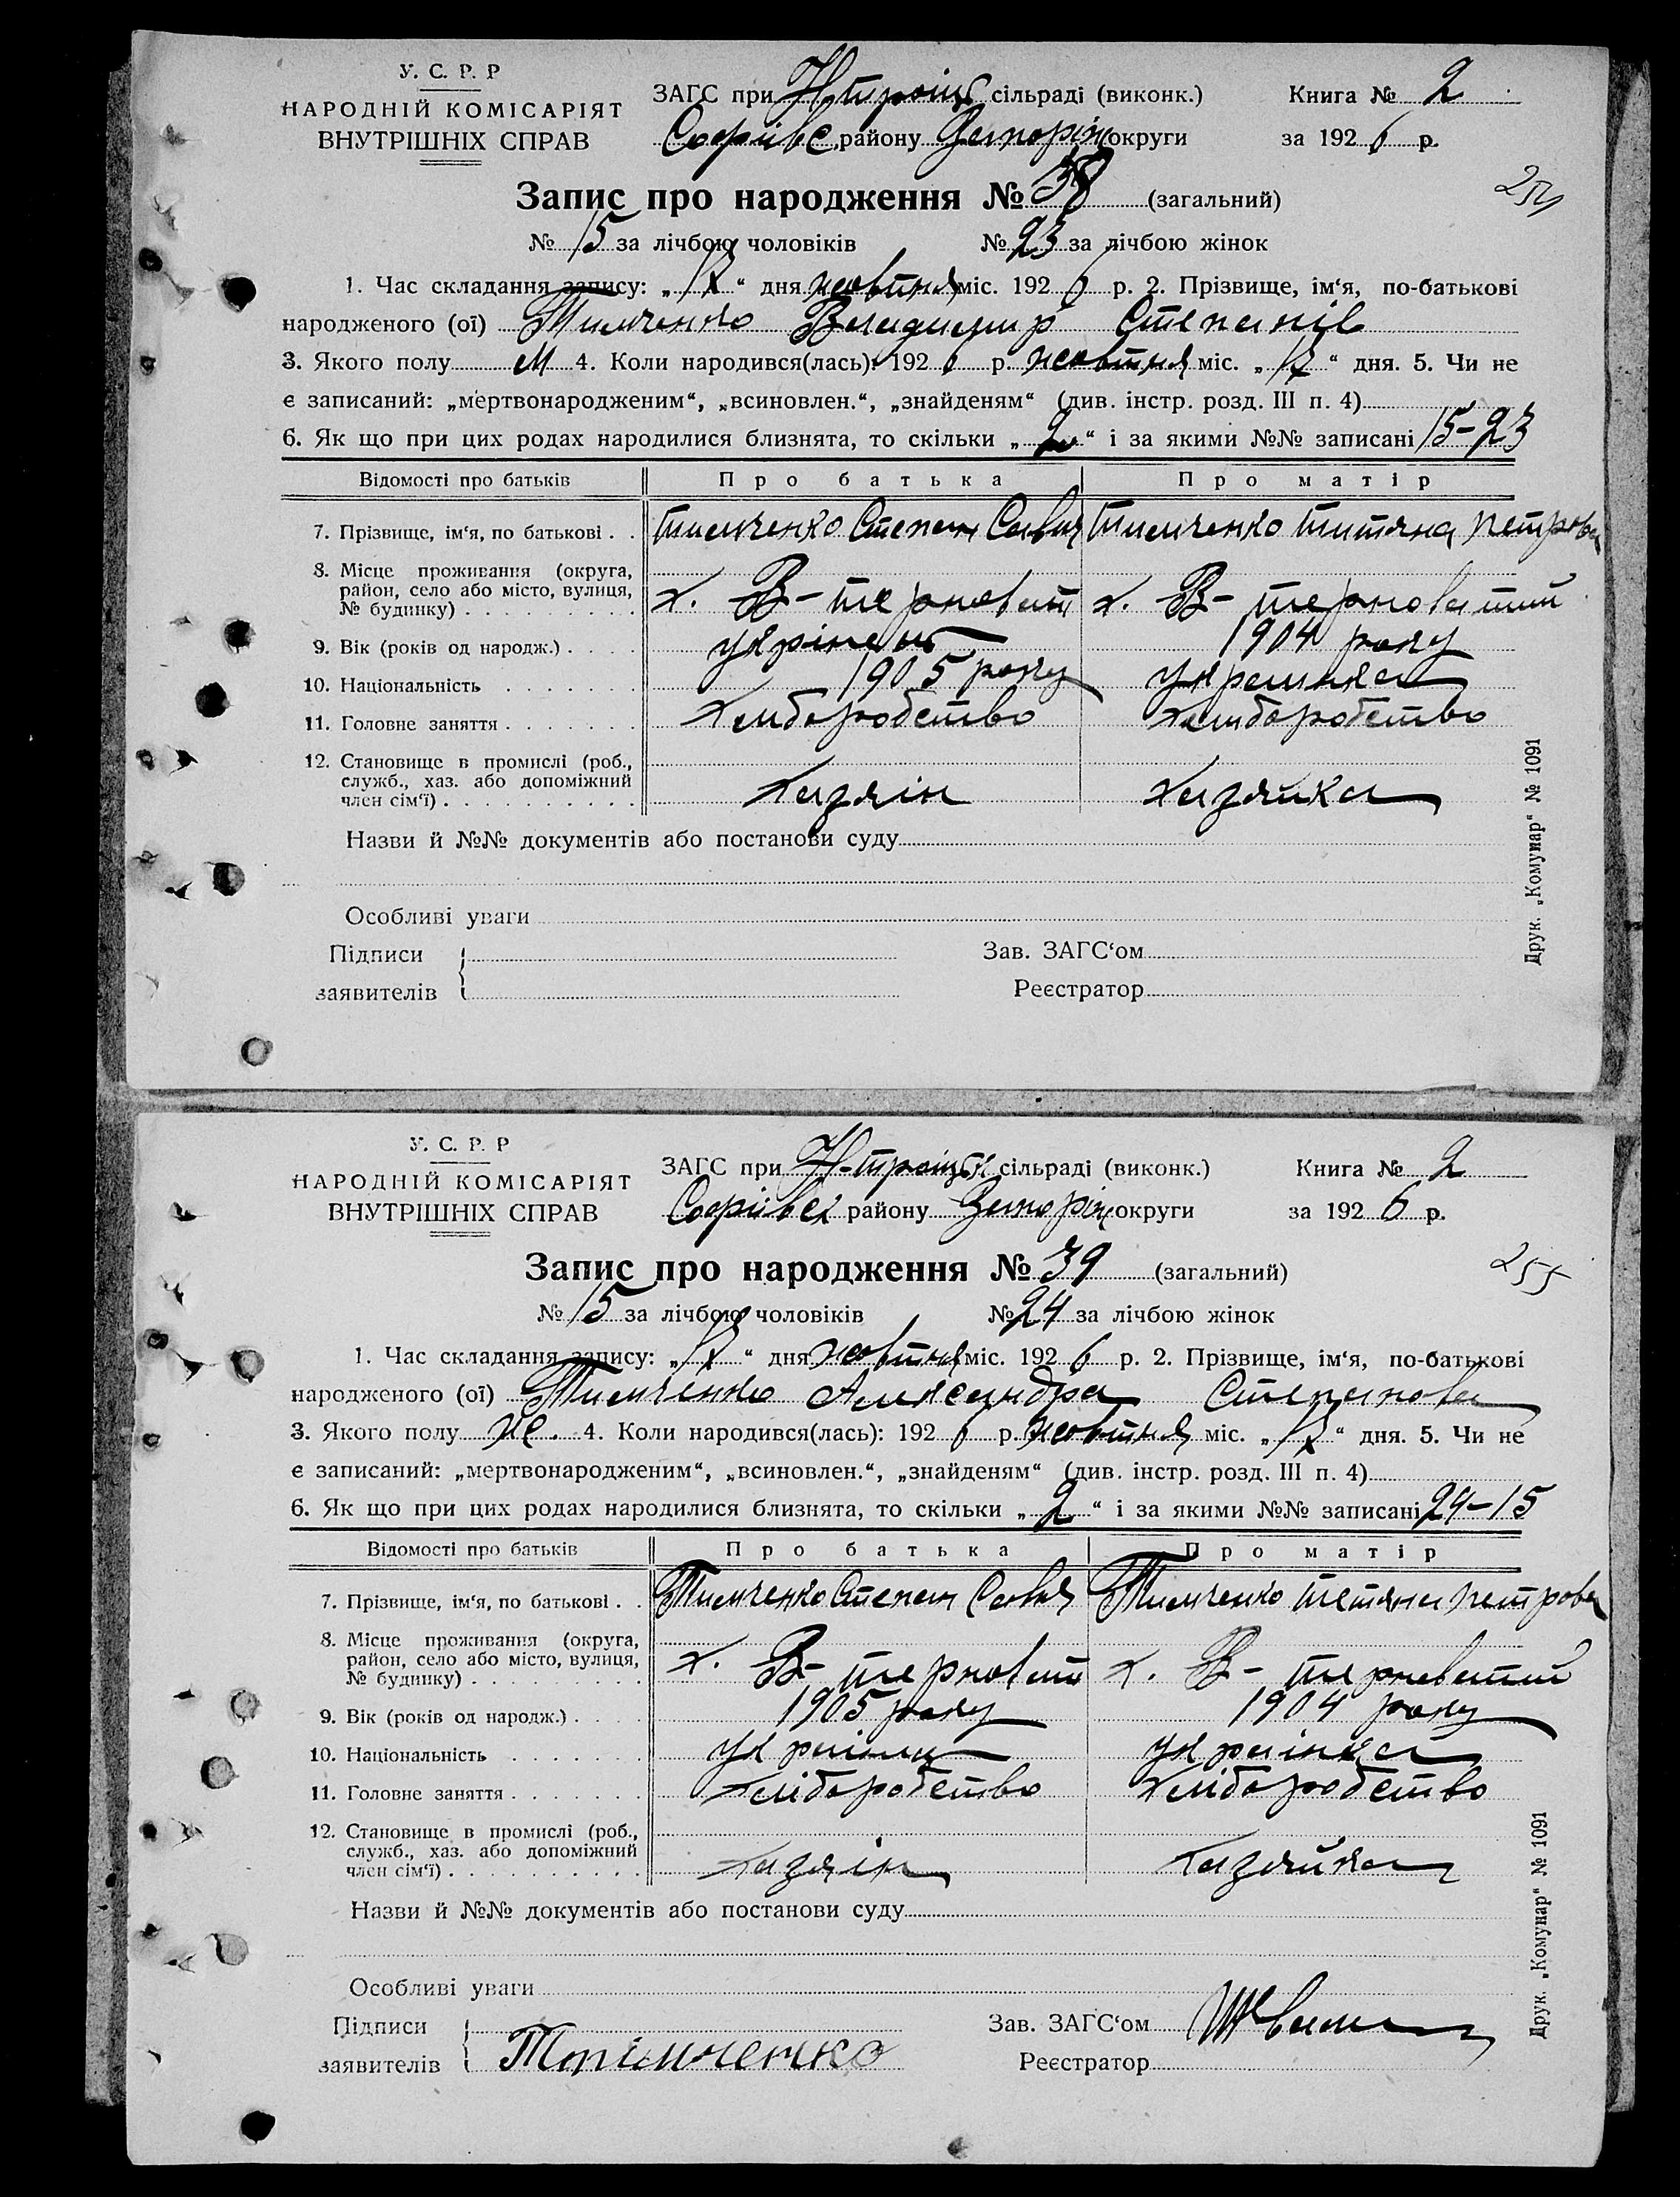 У. С. Р. Р
НАРОДНІЙ КОМІСАРІЯТ
ВНУТРІШНІХ СПРАВ
ЗАГС при Н-троіцк сільраді (виконк.) Книга № 2
Софіївс району Запоріж округи за 192 6 р.
Запис про народження № 38 (загальний)
№ 15 за лічбою чоловіків № 23 за лічбою жінок
1. Час складання запису: „ “ дня жовтня міс. 192 6 р. 2. Прізвище, ім‘я, по-батькові
народженого (ої) Тимченко Владимир Степанів
3. Якого полу М 4. Коли народився(лась): 192 6 р. жовтня міс. „ “ дня. 5. Чи не
є записаний: „мертвонародженим“, „всиновлен.“, „знайденям“ (див. інстр. розд. III п. 4)
6. Як що при цих родах народилися близнята, то скільки „ 2 “ і за якими №№ записані 15-23
Відомості про батьків Про батька Про матір
7. Прізвище, ім‘я, по батькові . . Тимченко Степан Савич Тимченко Титяна Петрова
8. Місце проживання (округа,
район, село або місто, вулиця,
№ будинку) х. В-терноват х. В-терноватий
9. Вік (років од народж.) украінець 1904 року
10. Національність 1905 року украинка
11. Головне заняття хлиборобство хлиборобство
12. Становище в промислі (роб.,
служб., хаз. або допоміжний
член сім‘ї) хазяін хазяйка
Назви й №№ документів або постанови суду
Особливі уваги
Підписи Зав. ЗАГС‘ом
заявителів Реєстратор
Друк. „Комунар“ № 1091
У. С. Р. Р
НАРОДНІЙ КОМІСАРІЯТ
ВНУТРІШНІХ СПРАВ
ЗАГС при Н-троіцьк сільраді (виконк.) Книга № 2
Софіївск району Запоріж округи за 192 6 р.
255
Запис про народження № 39 (загальний)
№ 15 за лічбою чоловіків № 24 за лічбою жінок
1. Час складання запису: „ “ дня жовтня міс. 192 6 р. 2. Прізвище, ім‘я, по-батькові
народженого (ої) Тимченко Александра Степанова
3. Якого полу же. 4. Коли народився(лась): 192 6 р. жовтня міс. „ “ дня. 5. Чи не
є записаний: „мертвонародженим“, „всиновлен.“, „знайденям“ (див. інстр. розд. III п. 4)
6. Як що при цих родах народилися близнята, то скільки „ 2 “ і за якими №№ записані 24-15
Відомості про батьків Про батька Про матір
7. Прізвище, ім‘я, по батькові . . Тимченко Степан Савич Тимченко Тетяна Петрова
8. Місце проживання (округа,
район, село або місто, вулиця,
№ будинку) х. В-терноват х. В-терноватий
9. Вік (років од народж.) 1905 року 1904 року
10. Національність украінец украінка
11. Головне заняття хліборобство хліборобство
12. Становище в промислі (роб.,
служб., хаз. або допоміжний
член сім‘ї) хазяін хазяйка
Назви й №№ документів або постанови суду
Особливі уваги
Підписи Зав. ЗАГС‘ом
заявителів Реєстратор
Друк. „Комунар“ № 1091